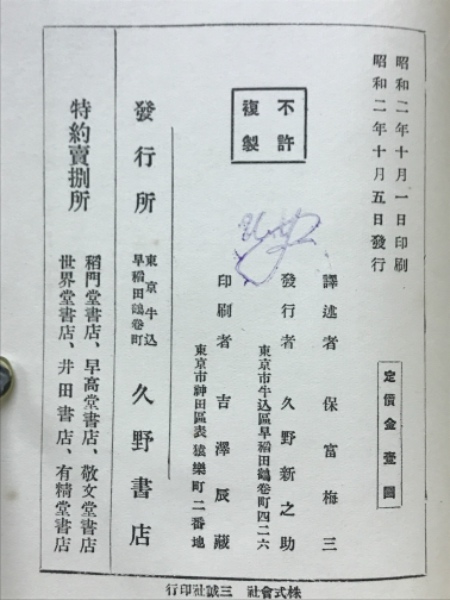 昭和二年十月一日印刷
昭和二年十月五日發行
定價金壹圓
不許
複製
譯述者 保富梅三
發行者 久野新之助
東京市牛込區早稻田鶴卷町四二六
印刷者 吉澤辰藏
東京市神田區表猿樂町二番地
發行所 東京牛込
早稻田鶴卷町
久野書店
特約賣捌所
稻門堂書店、早高堂書店、敬文堂書店
世界堂書店、井田書店、有精堂書店
株式會社 三誠社印行